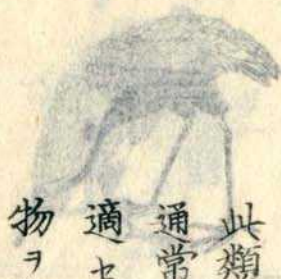 此類
通常
適セ
物ヲ